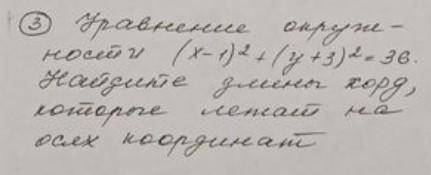 ③ Уравнение окруж-
ности (x-1)² + (y+3)² = 36.
Найдите длины хорд,
которые лежат на
осях координат